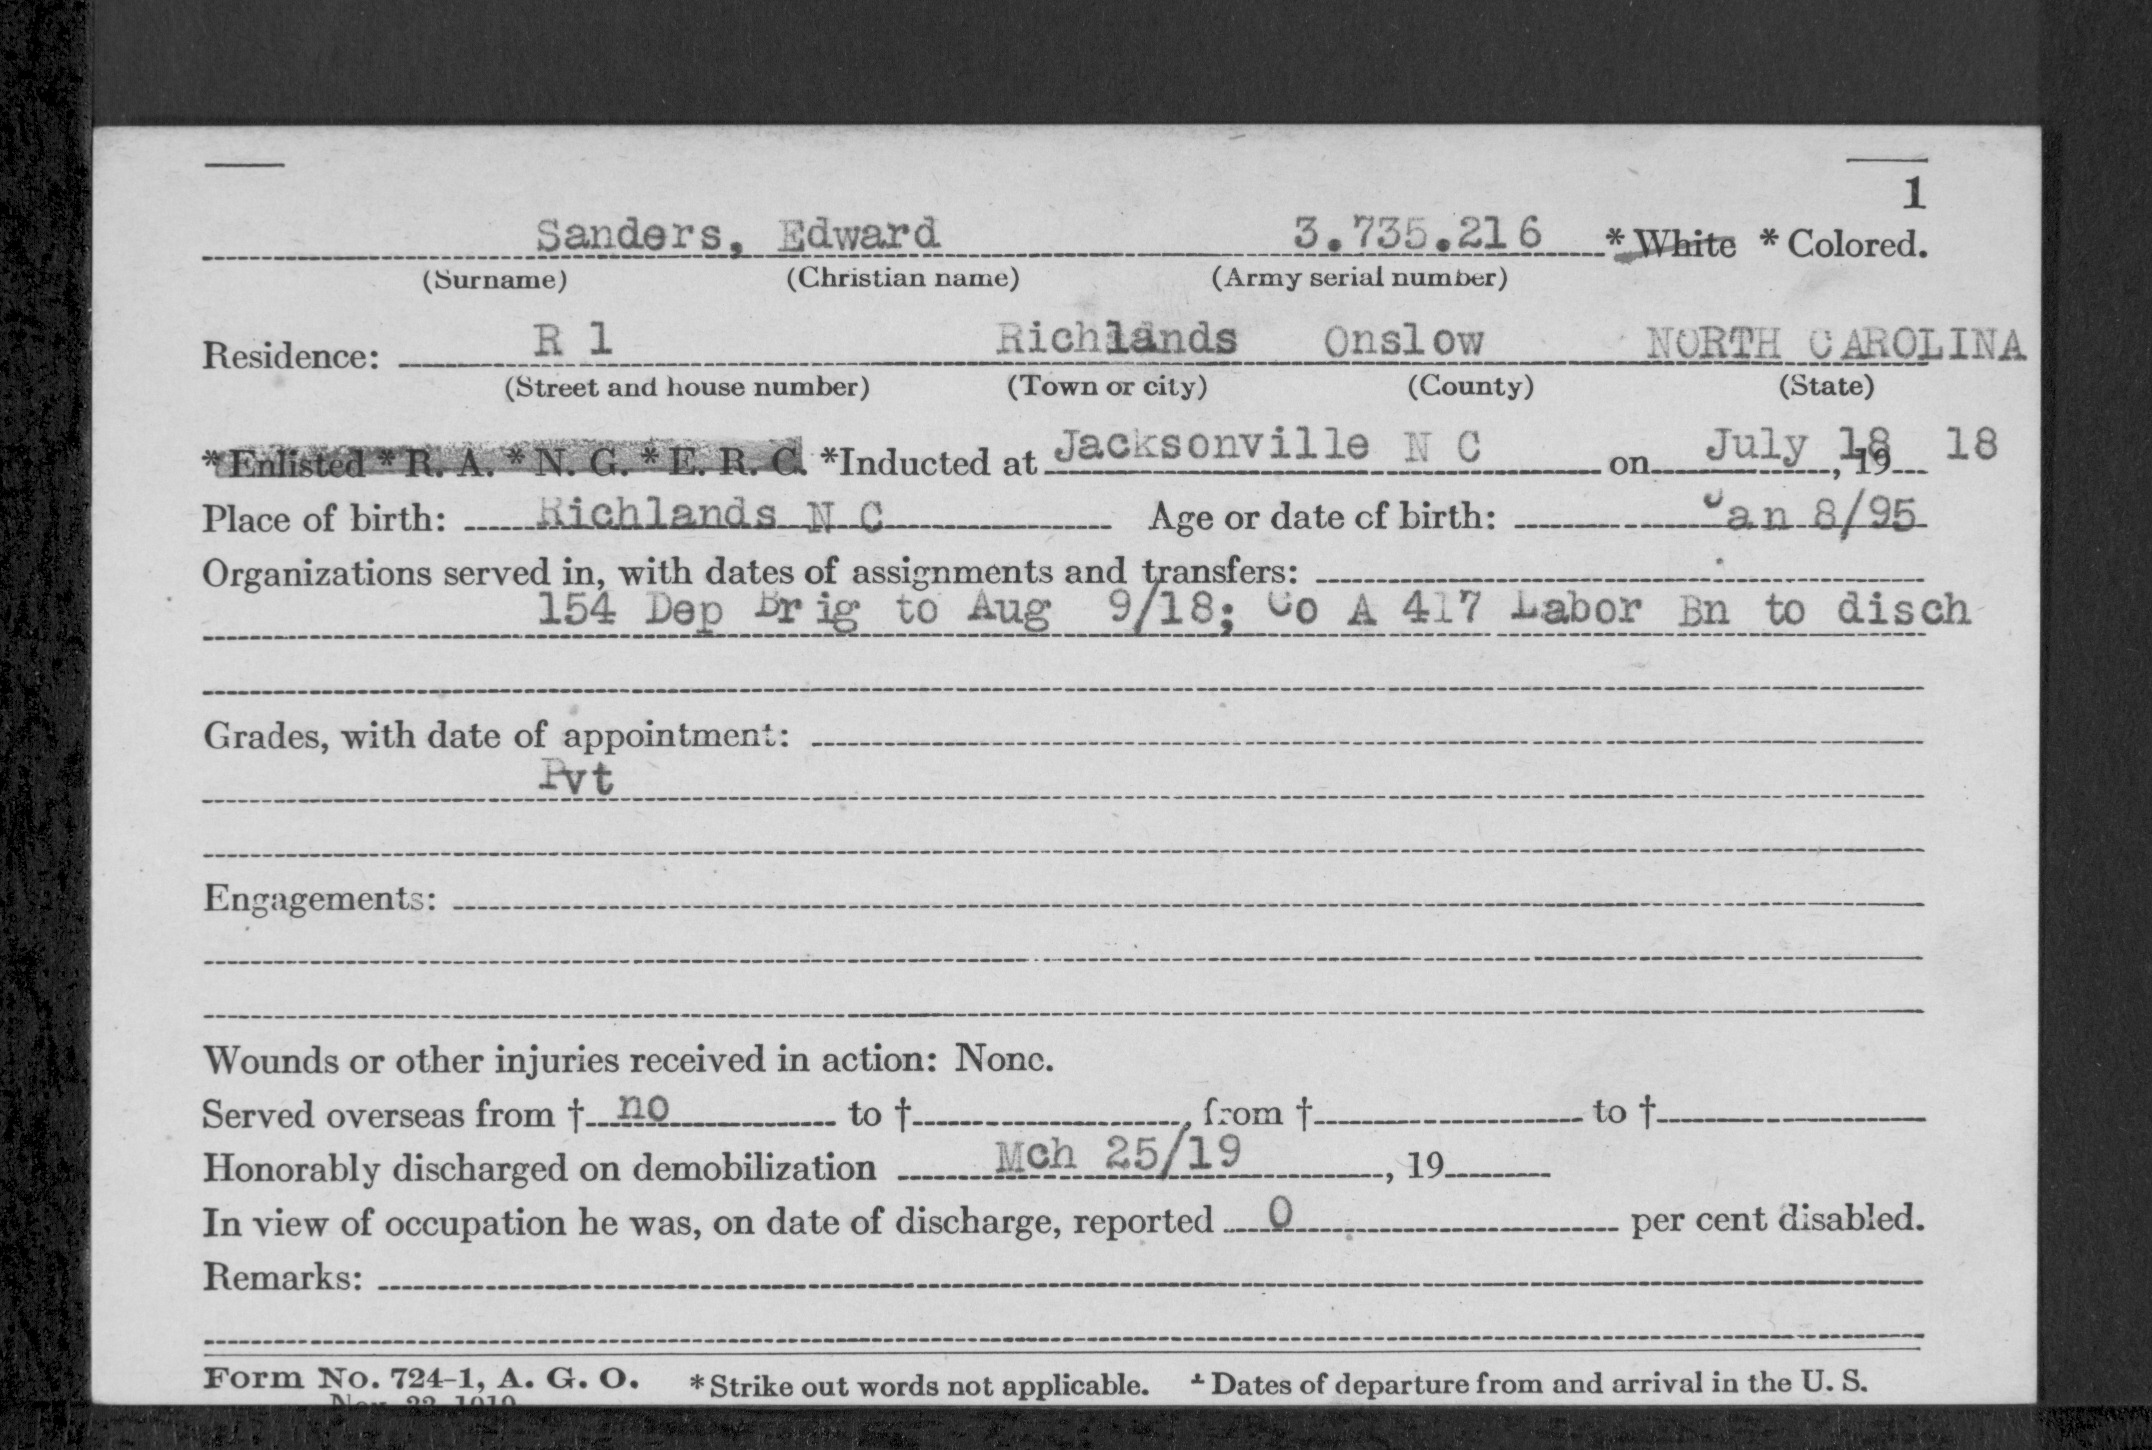 1
Sanders, Edward 3.735.216 * White * Colored.
(Surname) (Christian name) (Army serial number)
Residence: R 1 Richlands Onslow NORTH CAROLINA
(Street and house number) (Town or city) (County) (State)
* Enlisted * R. A. * N. G. * E. R. C. *Inducted at Jacksonville N C on July 18, 19 18
Place of birth: Richlands N C Age or date of birth: Jan 8/95
Organizations served in, with dates of assignments and transfers:
154 Dep Brig to Aug 9/18; Co A 417 Labor Bn to disch
Grades, with date of appointment:
Pvt
Engagements:
Wounds or other injuries received in action: None.
Served overseas from † no to † , from † to †
Honorably discharged on demobilization Mch 25/19 , 19
In view of occupation he was, on date of discharge, reported 0 per cent disabled.
Remarks:
Form No. 724-1, A. G. O. * Strike out words not applicable. † Dates of departure from and arrival in the U. S.
Nov. 22, 1919